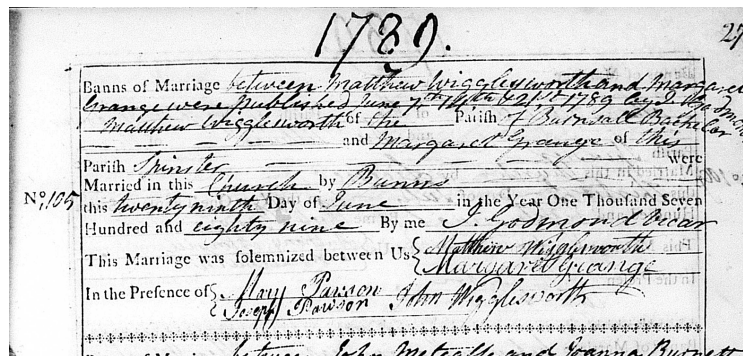 1789.
27
Banns of Marriage between Matthew Wigglesworth and Margaret
Grange were published June 7th 14th & 21st 1789 by J. Godmond
Matthew Wigglesworth of the Parish of Burnsall Bachelor
and Margaret Grange of this
Parish Spinster were
Married in this Church by Banns
No. 105 this twenty ninth Day of June in the Year One Thousand Seven
Hundred and eighty nine By me J. Godmond Vicar
This Marriage was solemnized between Us { Matthew Wigglesworth
Margaret Grange
In the Presence of { Mary Pawson
Joseph Pawson John Wigglesworth
between John Metcalfe and Joanna Burnett